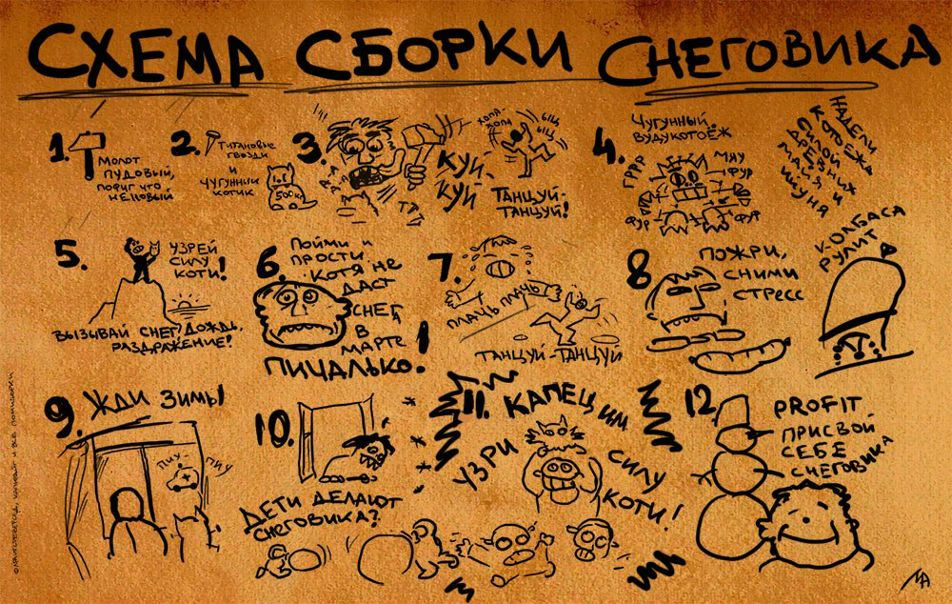 СХЕМА СБОРКИ СНЕГОВИКА
1.
МОЛОТ
ПУДОВЫЙ,
ПОФИГ ЧТО
НЕ НОВЫЙ
2.
ТИТАНОВЫЕ
ГВОЗДИ
И
ЧУГУННЫЙ
КОТИК
500КГ
3.
КУЙ
КУЙ
ХОПА
ХОПА
ЫЦ
ЫЦ
ТАНЦУЙ-
ТАНЦУЙ!
4.
ЧУГУННЫЙ
ВУДУКОТОЁЖ
ГРРР
МЯУ
ФУР
ФУР
ФУР
НАДЕЛИ
КОТОЕЖА
5.
УЗРЕЙ
СИЛУ
КОТИ!
ВЫЗЫВАЙ СНЕГ, ДОЖДЬ,
РАЗДРАЖЕНИЕ!
6.
ПОЙМИ И
ПРОСТИ.
КОТЯ НЕ
ДАСТ
СНЕГ
В
МАРТЕ
ПИЧАЛЬКО!
7.
ПЛАЧЬ ПЛАЧЬ
ТАНЦУЙ-ТАНЦУЙ
8
ПОЖРИ,
СНИМИ
СТРЕСС
КОЛБАСА
РУЛИТ
9.
ЖДИ ЗИМЫ
ПИУ-
ПИУ
10.
ДЕТИ ДЕЛАЮТ
СНЕГОВИКА?
11. КАПЕЦ ИМ
УЗРИ
СИЛУ
КОТИ!
12
PROFIT.
ПРИСВОЙ
СЕБЕ
СНЕГОВИКА